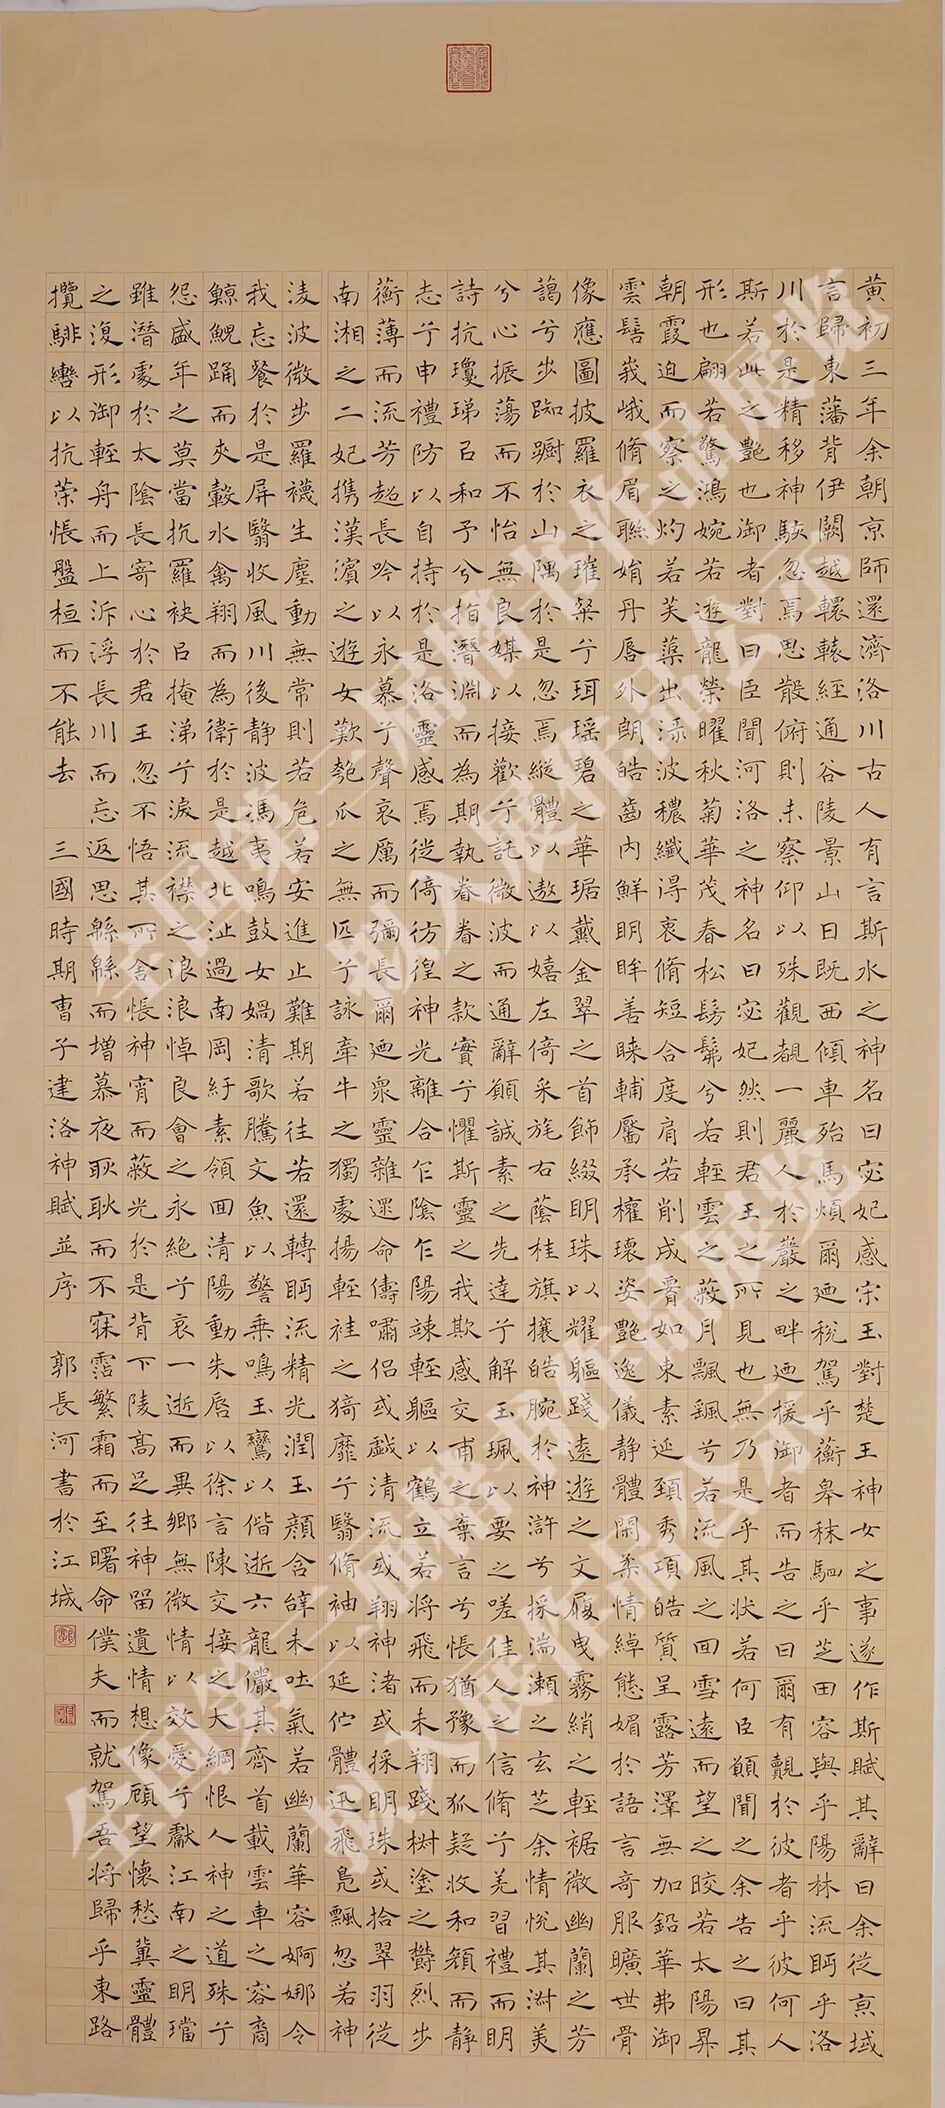 黃初三年余朝京師還濟洛川古人有言斯水之神名曰宓妃感宋玉對楚王神女之事遂作斯賦其辭曰余從京域
言歸東藩背伊闕越轘轅經通谷陵景山日既西傾車殆馬煩爾迺稅駕乎蘅皋秣駟乎芝田容與乎陽林流眄乎洛
川於是精移神駭忽焉思散俯則未察仰以殊觀覩一麗人於巖之畔迺援御者而告之曰爾有覿於彼者乎彼何人
斯若此之艷也御者對曰臣聞河洛之神名曰宓妃然則君王之所見也無乃是乎其状若何臣願聞之余告之曰其
形也翩若驚鴻婉若遊龍榮曜秋菊華茂春松髣髴兮若輕雲之蔽月飄颻兮若流風之回雪遠而望之皎若太陽昇
朝霞迫而察之灼若芙蕖出淥波穠纖得衷脩短合度肩若削成如束素延頸秀項皓質呈露芳澤無加鉛華弗御
雲髻峩峨脩眉聯娟丹唇外朗皓齒內鮮明眸善睞輔靨承權瓌姿艷逸儀静體閑柔情綽態媚於語言奇服曠世骨
像應圖披羅衣之璀粲兮珥瑶碧之華琚戴金翠之首飾綴明珠以耀軀踐遠遊之文履曳霧綃之輕裾微幽蘭之芳
藹兮步踟躕於山隅於是忽焉縱體以遨以嬉左倚采旄右蔭桂旗攘皓腕於神滸兮採湍瀨之玄芝余情悅其淑美
兮心振蕩而不怡無良媒以接歡兮託微波而通辭願誠素之先達兮解玉珮以要之嗟佳人之信脩兮羌習禮而明
詩抗瓊珶㠯和予兮指潛淵而為期執眷眷之款實兮懼斯靈之我欺感交甫之棄言兮悵猶豫而狐疑收和顏而静
志兮申禮防以自持於是洛靈感焉徙倚彷徨神光離合乍陰乍陽竦輕軀以鶴立若將飛而未翔踐椒塗之欝烈步
蘅薄而流芳超長吟以永慕兮聲哀厲而彌長爾迺衆靈雜遝命儔嘯侶或戲清流或翔神渚或採明珠或拾翠羽從
南湘之二妃攜漢濱之遊女歎匏瓜之無匹兮詠牽牛之獨處揚輕袿之猗靡兮翳脩袖以延佇體迅飛鳧飄忽若神
淩波微步羅襪生塵動無常則若危若安進止難期若往若還轉眄流精光潤玉顏含辭未吐氣若幽蘭華容婀娜令
我忘餐於是屏翳收風川後静波馮夷鳴鼓女媧清歌騰文魚以警乘鳴玉鸞以偕逝六龍儼其齊首載雲車之容裔
鯨鯢踊而夾轂水禽翔而為衛於是越北沚過南岡紆素領回清陽動朱唇以徐言陳交接之大綱恨人神之道殊兮
怨盛年之莫當抗羅袂㠯掩涕兮淚流襟之浪浪悼良會之永絕兮哀一逝而異鄉無微情以效愛兮獻江南之明璫
雖潛處於太陰長寄心於君王忽不悟其所舍悵神宵而蔽光於是背下陵高足往神留遺情想像顧望懷愁冀靈體
之復形御輕舟而上泝浮長川而忘返思緜緜而增慕夜耿耿而不寐霑繁霜而至曙命僕夫而就駕吾將歸乎東路
攬騑轡以抗策悵盤桓而不能去 三國時期曹子建洛神賦並序 郭長河書於江城